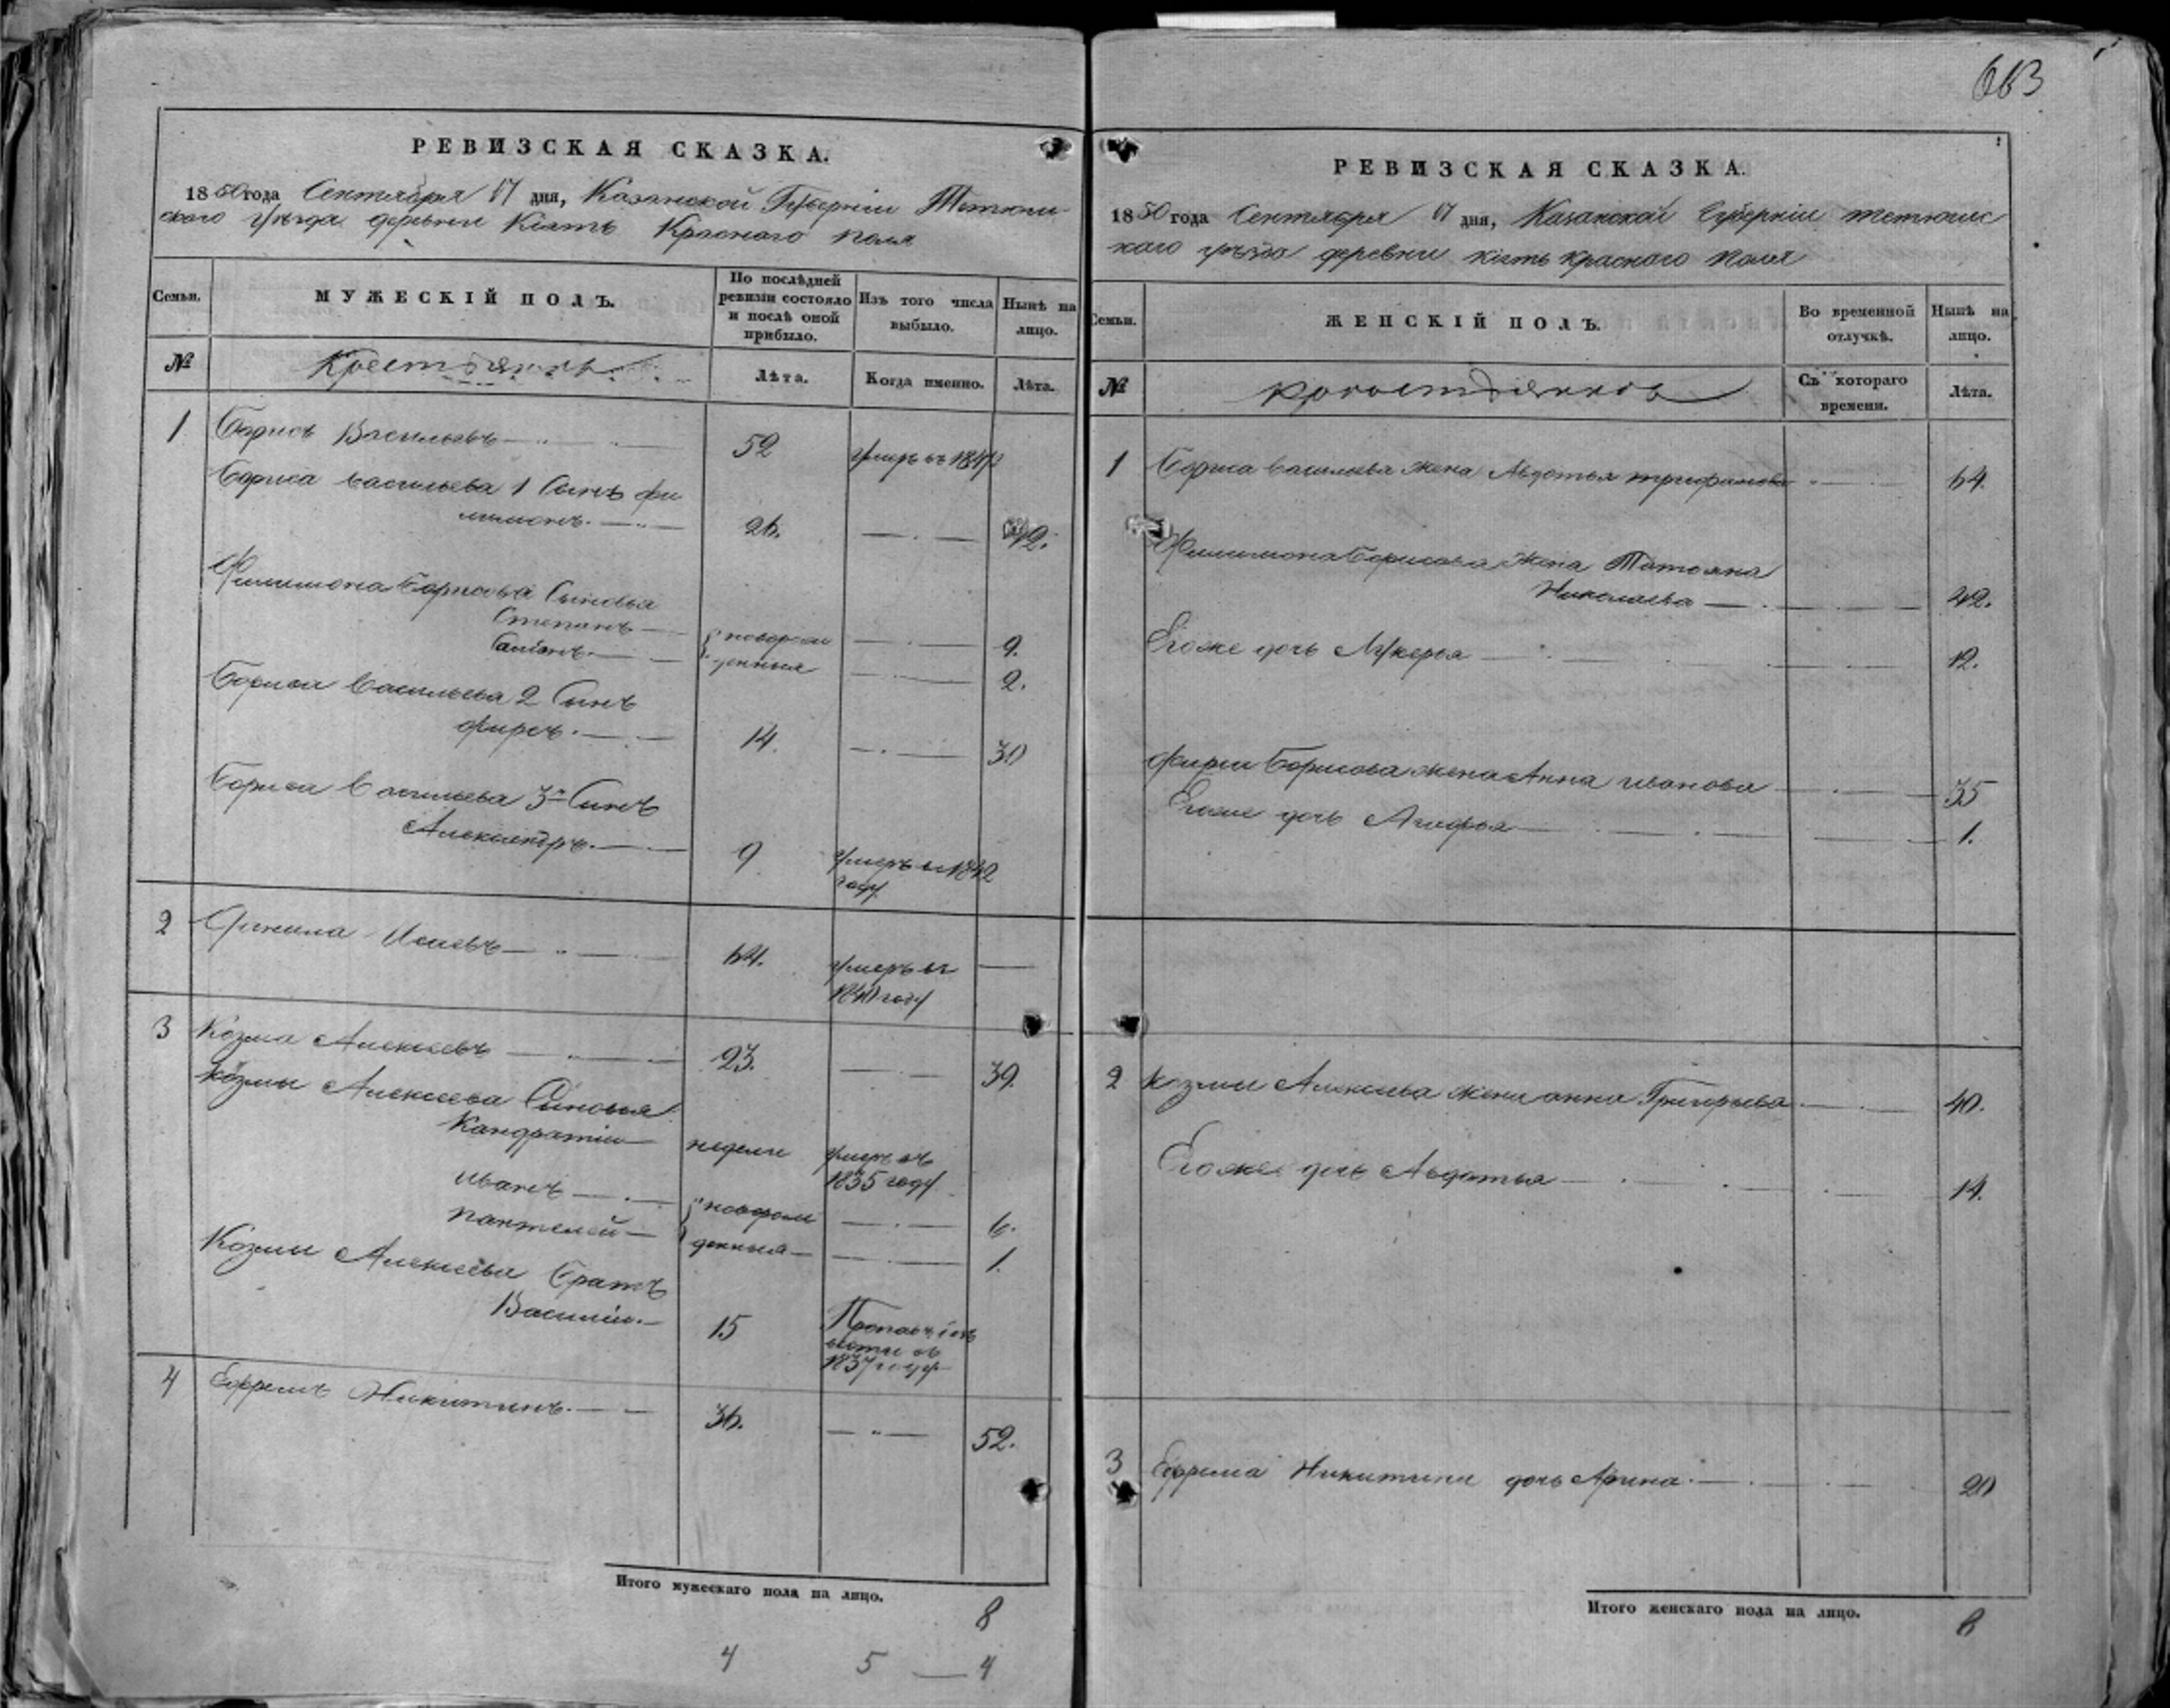 663
РЕВИЗСКАЯ СКАЗКА.
1850 года Сентября 17 дня, Казанской Губернiи Тетюш
скаго уѣзда деревни Кiять Краснаго поля
Семьи.
МУЖЕСКIЙ ПОЛЪ.
По послѣдней ревизiи состояло и послѣ оной прибыло.
Изъ того числа выбыло.
Нынѣ на лицо.
№
Крестьянъ
Лѣта.
Когда именно.
Лѣта.
1 Борисъ Васильевъ 52 умеръ въ 184
Бориса васильева 1 Сынъ фи
лимонъ. 26. 42.
Филимона Борисова Сыновья
Степанъ новорож 9.
денныя 2.
Бориса Васильева 2 Сынъ
фирсъ. 14. 30
Бориса Васильева 3й Сынъ
Александръ. 9 умеръ въ 1842
году
2 Данила Исаевъ 64. умеръ въ
1840 году
3 Козма Алексеевъ 23. 39.
Козмы Алексеева Сыновья
Кандратiи недели умеръ въ
1835 году
иванъ новорож 6.
пантелей денныя 1.
Козмы Алексеева Братъ
Василiи. 15 Пропалъ безъ
вести въ
1837 году
4 Ефремъ Никитинъ. 36. 52.
Итого мужескаго пола на лицо.
8
4 5 4
РЕВИЗСКАЯ СКАЗКА.
1850 года Сентября 17 дня, Казанской Губернiи тетюшс
каго уѣзда деревни кiять краснаго поля
Семьи.
ЖЕНСКIЙ ПОЛЪ.
Во временной отлучкѣ.
Нынѣ на лицо.
№
Съ котораго времени.
Лѣта.
1 Бориса васильева жена Авдотья трифанова 64.
Филимона Борисова жена Татьяна
Николаева 42.
Егоже дочь Лукерья 12.
фирса Борисова жена Анна иванова 35
Егоже дочь Агафья 1.
2 Козмы Алексеева жена анна Григорьева 40.
Егоже дочь Авдатья 14.
3 Ефрема Никитина дочь Арина. 20
Итого женскаго пола на лицо.
8